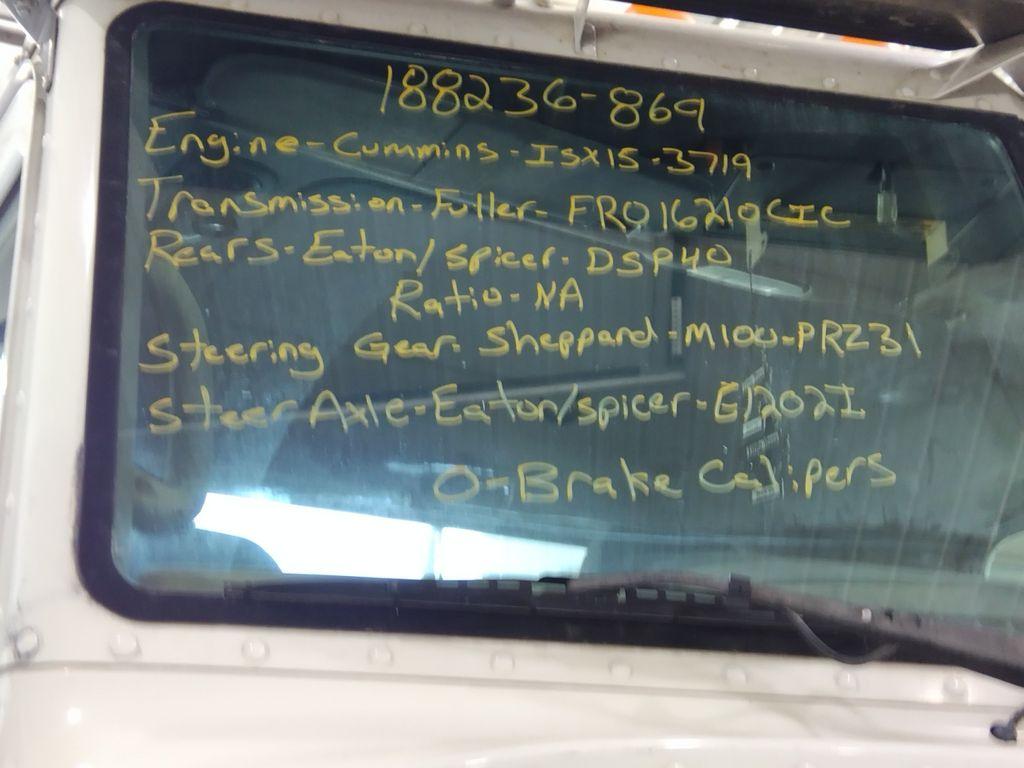 188236-869
Engine-Cummins-ISX15-3719
Transmission-Fuller-FRO16210CIC
Rears-Eaton/Spicer-DSP40
Ratio-NA
Steering Gear-Sheppard-M100-PRZ31
Steer Axle-Eaton/spicer-E1202I
O-Brake Calipers